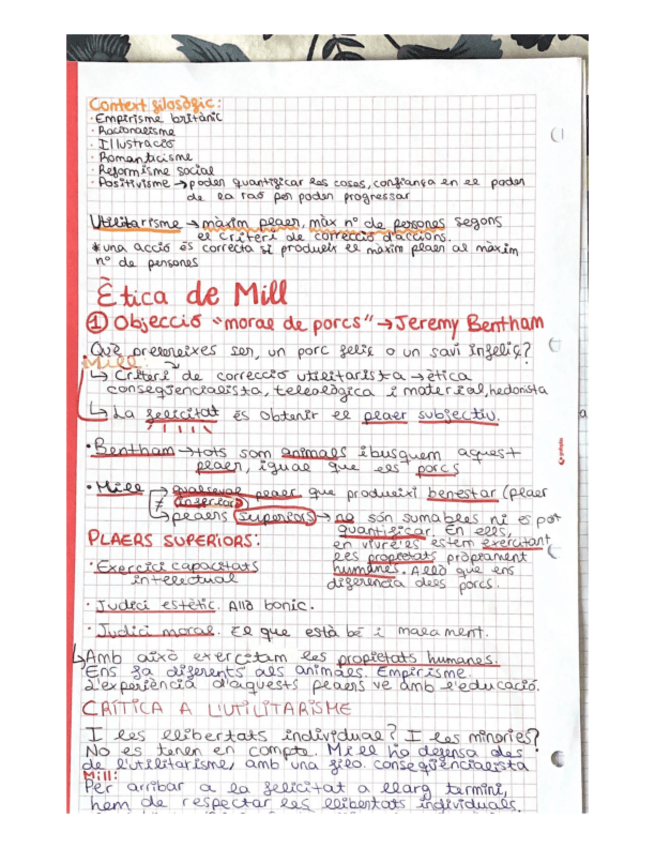 Context filosòfic:
· Empirisme britànic
· Racionalisme
· Il·lustració
· Romanticisme
· Reformisme social
· Positivisme → poder quantificar les coses, confiança en el poder
de la raó per poder progressar
Utilitarisme → màxim plaer, màx nº de persones segons
el criteri de correcció d'accions.
* una acció és correcta si produeix el màxim plaer al màxim
nº de persones
Ètica de Mill
① Objecció "moral de porcs" → Jeremy Bentham
Què prefereixes ser, un porc feliç o un savi infeliç?
Mill:
↳ Criteri de correcció utilitarista → ètica
conseqüencialista, teleològica i material, hedonista
↳ La felicitat és obtenir el plaer subjectiu.
· Bentham → tots som animals i busquem aquest
plaer, igual que els porcs
· Mill → qualsevol plaer que produeixi benestar (plaer
≠ inferior)
↳ plaers superiors → no són sumables ni es pot
quantificar. En ells,
PLAERS SUPERIORS: en viure'ls estem exercitant
les propietats pròpiament
· Exercici capacitats humanes. Allò que ens
intel·lectual diferencia dels porcs.
· Judici estètic. Allò bonic.
· Judici moral. El que està bé i malament.
↳ Amb això exercitam les propietats humanes.
Ens fa diferents als animals. Empirisme.
L'experiència d'aquests plaers ve amb l'educació.
CRÍTICA A L'UTILITARISME
I les llibertats individual? I les minories?
No es tenen en compte. Mill ho defensa des
de l'utilitarisme, amb una filo. conseqüencialista
Mill:
Per arribar a la felicitat a llarg termini,
hem de respectar les llibertats individuals.